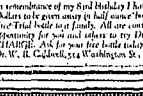 n remembrance of my 83rd Birthday I ha
Dollars to be given away in half ounce bo
ive Trial bottle to a family. All are can
pportunity for you and others to try D
CHARGE. Ask for your free bottle today
Dr. W. B. Caldwell, 514 Washington St.,